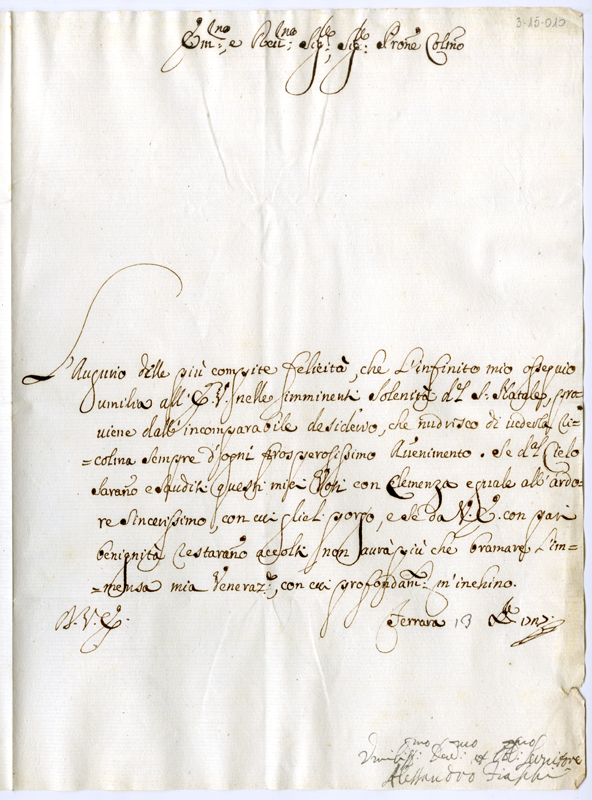 3-15-010
Em:mo e Reu:mo Sig:re Sig:re Prone Colmo
L'Augurio delle più compite felicità, che L'infinito mio ossequio
umilia all'E. V. nelle imminenti Solenità del S: Natale, pro
uiene dall'incomparabile desiderio, che nudrisco di uederla Ri=
=colma sempre d'ogni prosperosissimo Auenimento. Se dal Cielo
Sarano esauditi questi miei Voti con Clemenza eguale all'ardo
re sincerissimo, con cui gliel porgo, e se da V. E. con pari
benignità restarano accolti non aurà più che bramare L'im=
=mensa mia Veneraz:e, con cui profondam:te m'inchino.
D. V. E. Ferrara 13 Xbre
Umiliss:mo Deu:mo et Obl:mo Seruitore
Alessandro Fiaschi